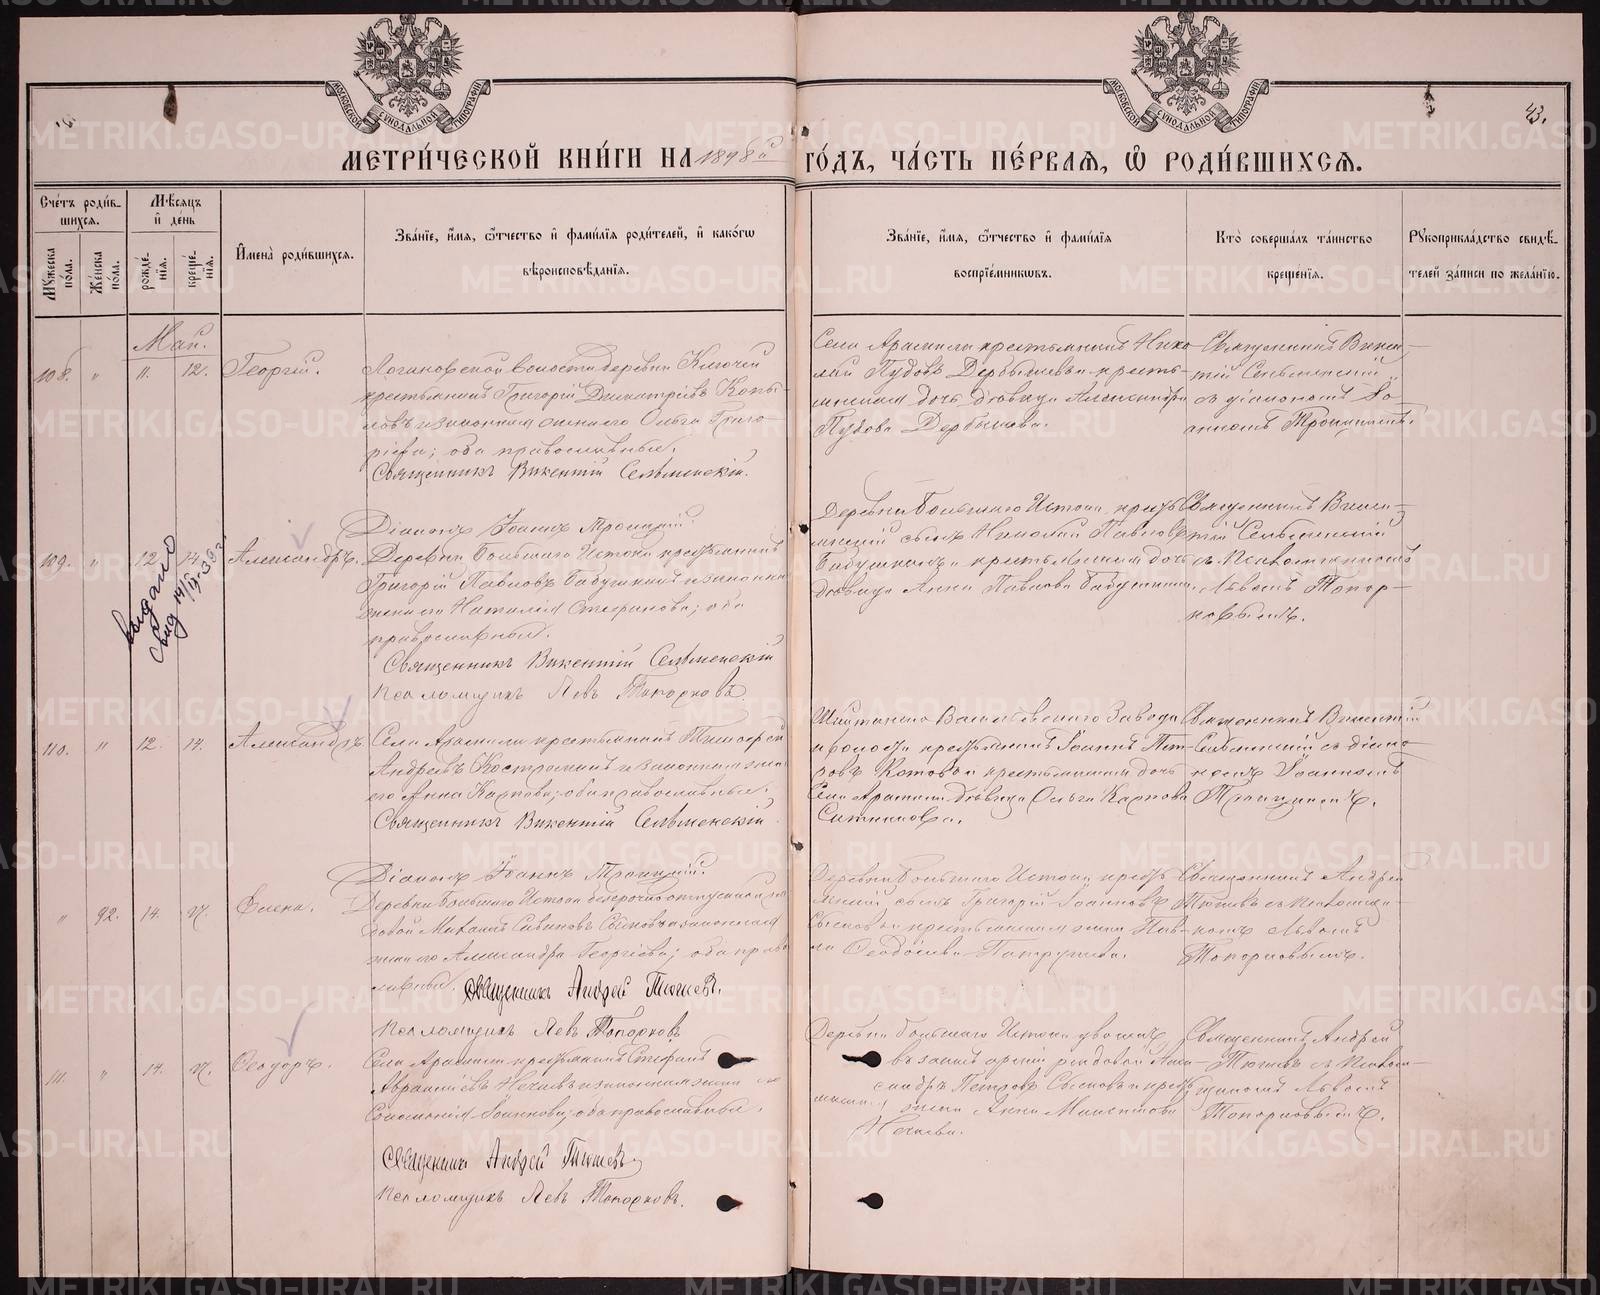 МОСКОВСКОЙ СѴНОДАЛЬНОЙ ТИПОГРАФІИ
МОСКОВСКОЙ СѴНОДАЛЬНОЙ ТИПОГРАФІИ
43.
МЕТРИ́ЧЕСКОЙ КНИ́ГИ НА 1898й ГО́ДЪ, ЧА́СТЬ ПЕ́РВАѦ, Ѡ҆ РОДИ́ВШИХСѦ.
Сче́тъ роди́в-
шихсѧ.
Мꙋжеска по́ла.
Же́нска по́ла.
Мѣ́сѧцъ
и҆ де́нь
рожде́-
нїѧ.
креще́-
нїѧ.
И҆мена̀ роди́вшихсѧ.
Зва́нїе, и҆́мѧ, ѻ҆́тчество и҆ фами́лїѧ роди́телей, и҆ како́гѡ
вѣроисповѣ́данїѧ.
Зва́нїе, и҆́мѧ, ѻ҆́тчество и҆ фами́лїѧ
воспрїе́мниковъ.
Кто̀ соверша́лъ та́инство
креще́нїѧ.
Рꙋкоприкла́дство свидѣ́-
телей за́писи по жела́нїю.
Май.
108. " 11. 12. Георгій.
Логиновской волости деревни Ключей
крестьянинъ Григорій Димитріевъ Копы-
ловъ и законная жена его Ольга Григо-
рьева; оба православные.
Священникъ Викентій Сельменскій.
Діаконъ Іоаннъ Троицкій.
Села Арамили крестьянинъ Нико-
лай Пудовъ Дербышевъ и кресть-
янская дочь дѣвица Александра
Пудова Дербышева.
Священникъ Викен-
тій Сельменскій
съ діакономъ Іо-
анномъ Троицкимъ.
109. " 12. 14. Александръ.
выдано
свид 14/IV-39 г
Деревни Большаго Истока крестьянинъ
Григорій Павловъ Бабушкинъ и законная
жена его Наталія Стефанова; оба
православные.
Священникъ Викентій Сельменскій
Псаломщикъ Левъ Топорковъ
Деревни Большаго Истока кресть-
янскій сынъ Николай Павловъ
Бабушкинъ и крестьянская дочь
дѣвица Анна Павлова Бабушкина.
Священникъ Викен-
тій Сельменскій
съ Псаломщикомъ
Львомъ Топор-
ковымъ.
110. " 12. 14. Александръ.
Села Арамили крестьянинъ Тимофей
Андреевъ Костроминъ и законная жена
его Анна Карпова; оба православные.
Священникъ Викентій Сельменскій
Діаконъ Іоаннъ Троицкій.
Шайтанско Васильевскаго Завода
и волости крестьянинъ Іоаннъ Пет-
ровъ Котовъ и крестьянская дочь
Села Арамили дѣвица Ольга Карпова
Ситникова.
Священникъ Викентій
Сельменскій съ діако-
номъ Іоанномъ
Троицкимъ.
" 92. 14. 17. Елена.
Деревни Большаго Истока безсрочно отпускной ря-
довой Михаилъ Савиновъ Сысковъ и законная
жена его Александра Георгіева; оба право-
славные. Священникъ Андрей Тюшевъ.
Псаломщикъ Левъ Топорковъ
Деревни Большаго Истока кресть-
янскій сынъ Григорій Іоанновъ
Сысковъ и крестьянская жена Пав-
ла Ѳеодосіева Патрушева.
Священникъ Андрей
Тюшевъ съ Псаломщи-
комъ Львомъ
Топорковымъ.
111. " 14. 17. Ѳеодоръ.
Села Арамили крестьянинъ Стефанъ
Авраамовъ Нечаевъ и законная жена его
Соломонія Іоаннова; оба православные.
Священникъ Андрей Тюшевъ
Псаломщикъ Левъ Топорковъ.
Деревни Большаго Истока уволенъ
въ запасъ арміи рядовой Алек-
сандръ Петровъ Сысковъ и кресть-
янская жена Анна Максимова
Нечаева.
Священникъ Андрей
Тюшевъ съ Псалом-
щикомъ Львомъ
Топорковымъ.
METRIKI.GASO-URAL.RU